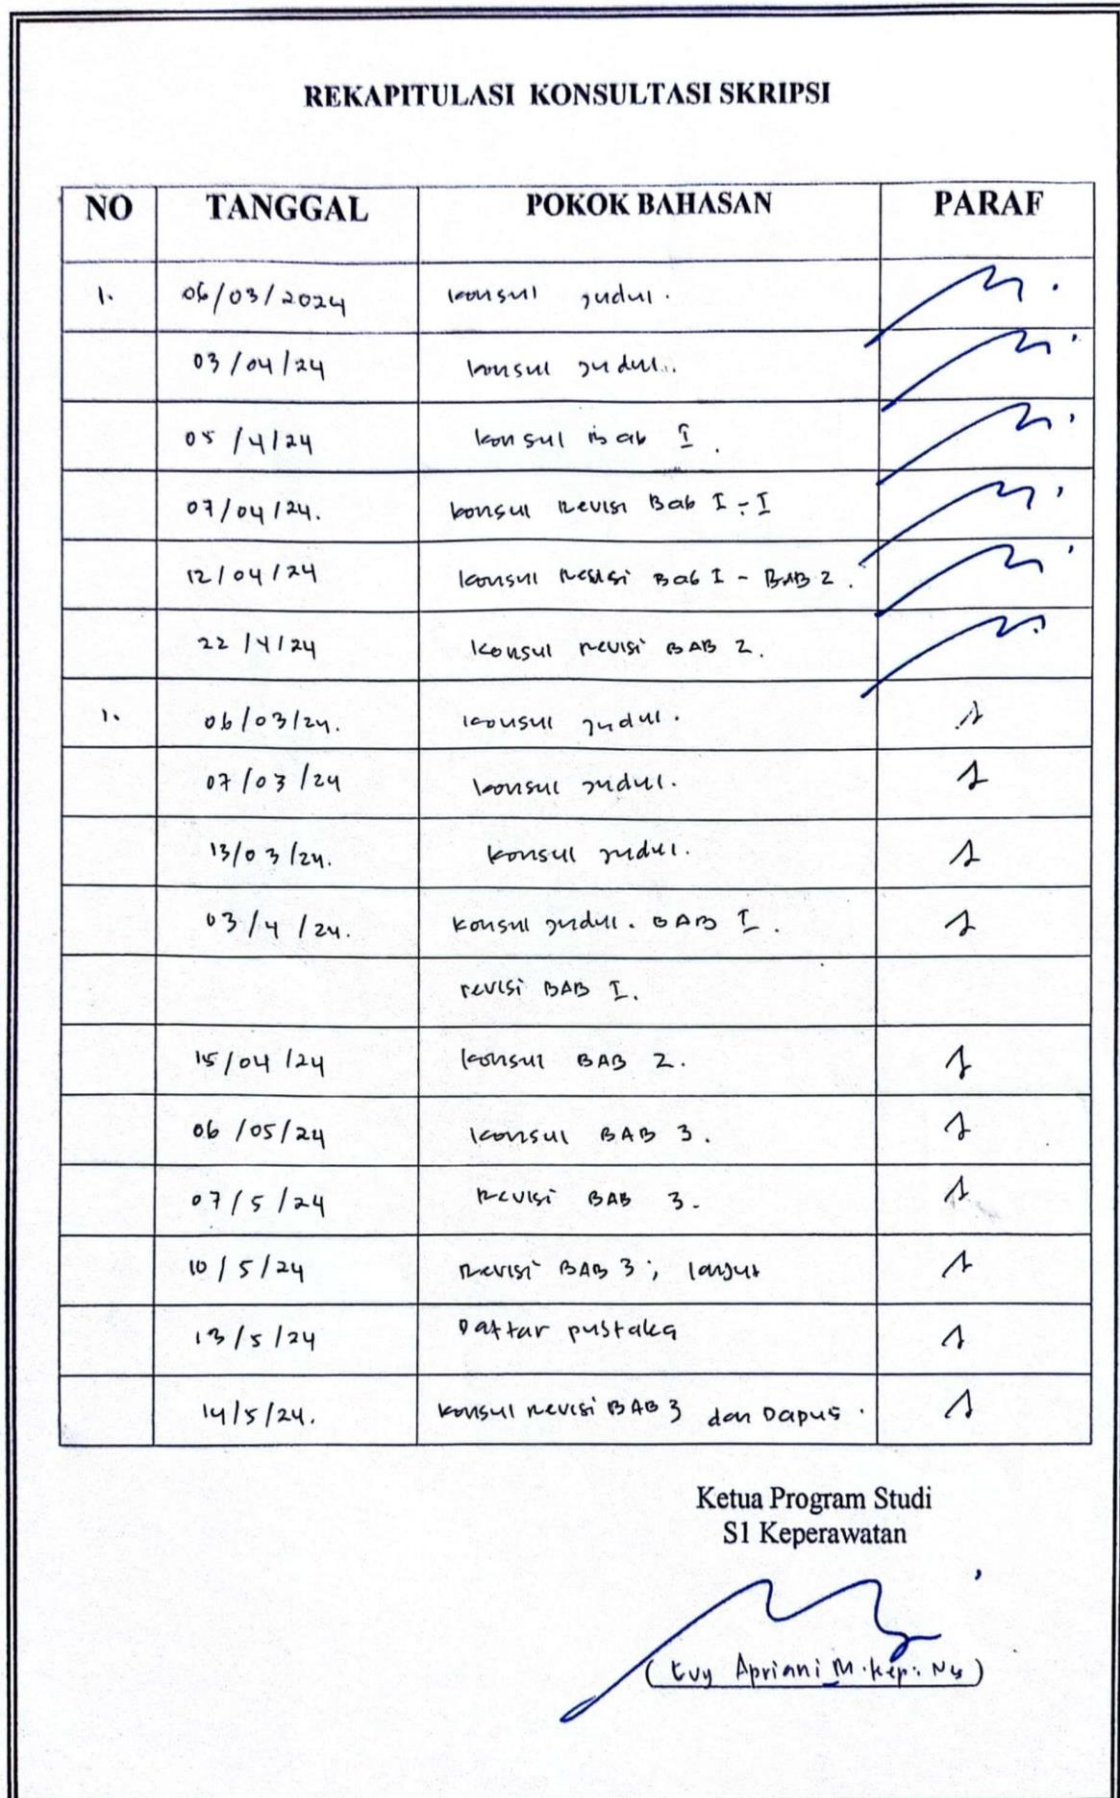 REKAPITULASI KONSULTASI SKRIPSI
NO TANGGAL POKOK BAHASAN PARAF
1. 06/03/2024 konsul judul.
03/04/24 konsul judul.
05/4/24 konsul Bab I.
07/04/24. konsul Revisi Bab I - I
12/04/24 konsul Revisi Bab I - BAB 2.
22/4/24 Konsul revisi BAB 2.
1. 06/03/24. konsul judul.
07/03/24 konsul judul.
13/03/24. konsul judul.
03/4/24. konsul judul. BAB I.
revisi BAB I.
15/04/24 konsul BAB 2.
06/05/24 konsul BAB 3.
07/5/24 Revisi BAB 3.
10/5/24 Revisi BAB 3; lanjut
13/5/24 Daftar pustaka
14/5/24. konsul revisi BAB 3 dan Dapus.
Ketua Program Studi
S1 Keperawatan
(Evy Apriani M.Kep. Ns)